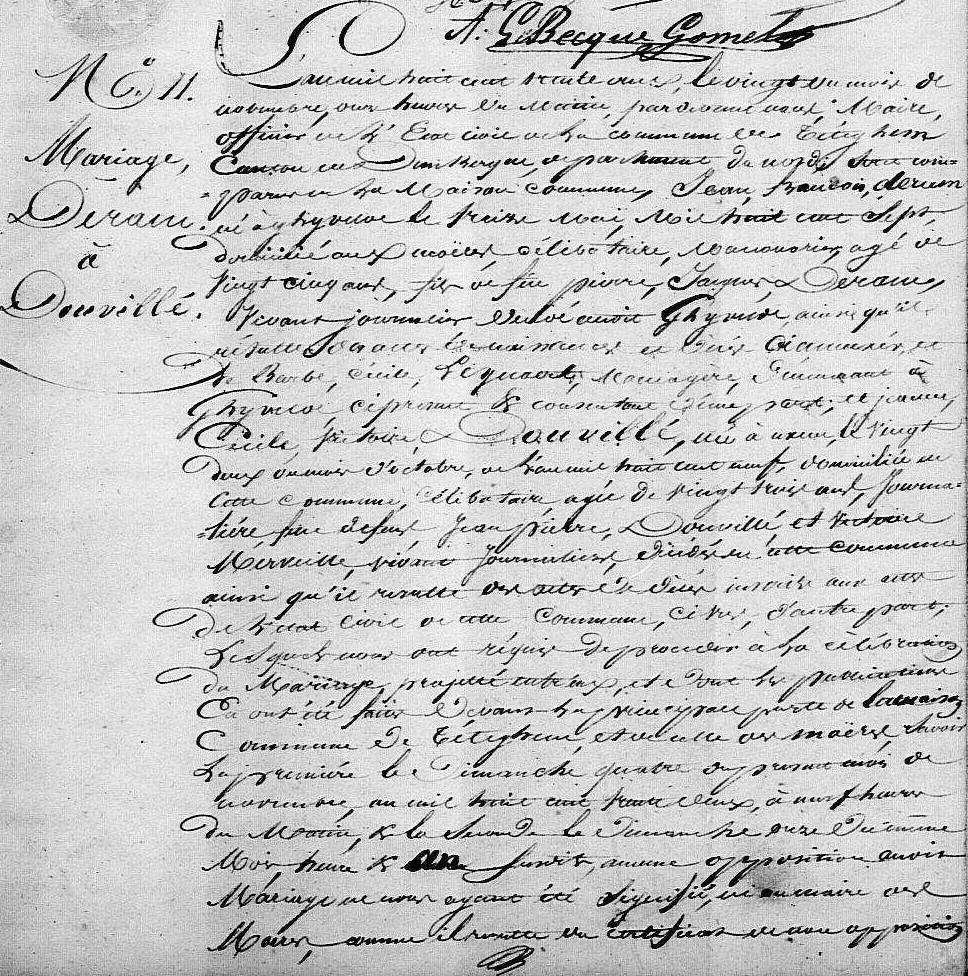 A. G. Becque Gomel
N.º 11.
Mariage,
Deram
à
Douvillé.
L'an mil huit cent trente deux, le vingt du mois de
novembre, onze heures du Matin, pardevant nous, Maire,
officier de l'Etat civil de la commune de Téteghem
Canton de Dunkerque, département du nord, sont com=
=parus en la Maison commune, Jean, francois, deram
né à ghyvelde le treize Mai, Mil huit cent Sept,
domicilié aux moëres célibataire, Manouvrier, agé de
Vingt cinq ans, fils de feu pierre, Jacques Deram,
Vivant journalier décédé audit Ghyvelde, ainsi qu'il
résulte des actes de naissances et décès ci annexés, et
de Barbe, Cécile, Menagère, demeurant à
Ghyvelde ci présente & consentante d'une part; et jeanne,
Cécile, Victoire Douvillé, née à le Vingt
deux du mois d'octobre, de l'an mil huit cent neuf, domiciliée en
Cette commune, Célibataire agée de Vingt trois ans, Journa=
=lière fille de feus Jean pierre, Douvillé et Victoire
Merveille, vivant journaliers, décédés en cette commune
ainsi qu'il résulte des actes de décès inscrits aux actes
de l'état civil de cette Commune, d'autre part;
Lesquels nous ont réquis de procéder à la célébration
du Mariage projetté entre eux, et dont les publications
En ont été faites devant la principale porte de la maison
Commune de Téteghem, et de celle des moëres, savoir
La première le Dimanche quatre du présent mois de
novembre, an mil huit cent trente deux, à neuf heures
du Matin, & la Seconde le dimanche onze du même
Mois, heure & an Susdits, aucune opposition audit
Mariage ne nous ayant été Signifié, ni au maire des
Moëres, comme il résulte du certificat de non opposition